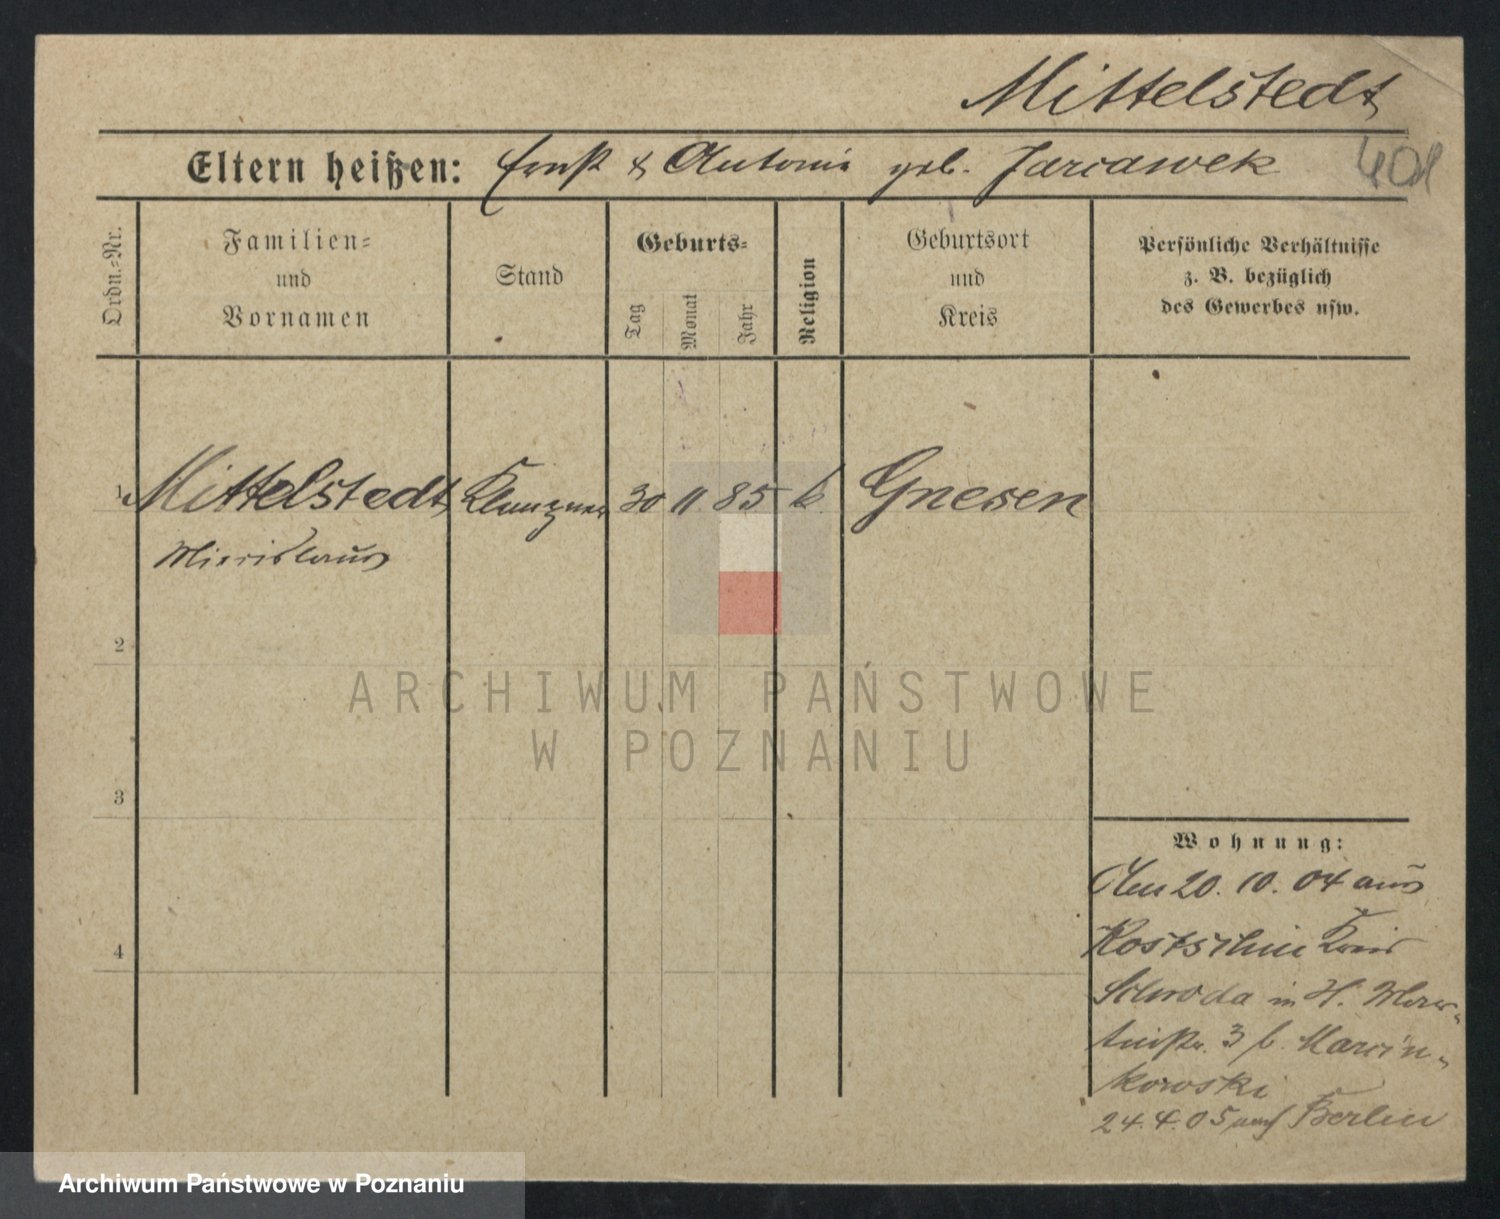 Mittelstedt
Eltern heißen: Ernst & Antonie geb. Jarcawek
401
Ordn.-Nr.
Familien-
und
Vornamen
Stand
Geburts-
Tag
Monat
Jahr
Religion
Geburtsort
und
Kreis
Persönliche Verhältnisse
z. B. bezüglich
des Gewerbes usw.
1 Mittelstedt Klempner 30 11 85 k. Gnesen
2
ARCHIWUM PAŃSTWOWE
W POZNANIU
3
4
Wohnung:
Am 20. 10. 04 aus
Kostschin Kreis
Schroda in H.
3 b. Marcin-
kowski
24. 4. 05 auf Berlin
Archiwum Państwowe w Poznaniu